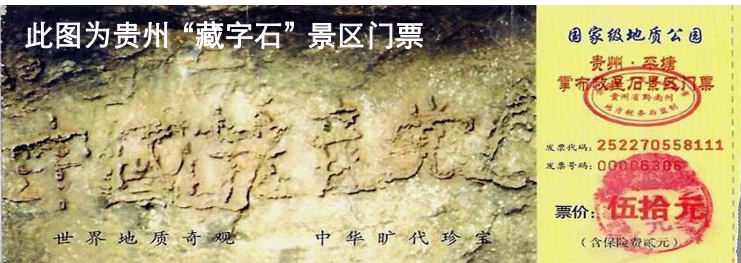 此图为贵州“藏字石”景区门票
中国共产党
世界地质奇观 中华旷代珍宝
国家级地质公园
贵州·平塘
掌布救星石景区门票
贵州省黔南州
地方税务局监制
发票代码：252270558111
发票号码：00006306
票价：伍拾元
（含保险费贰元）